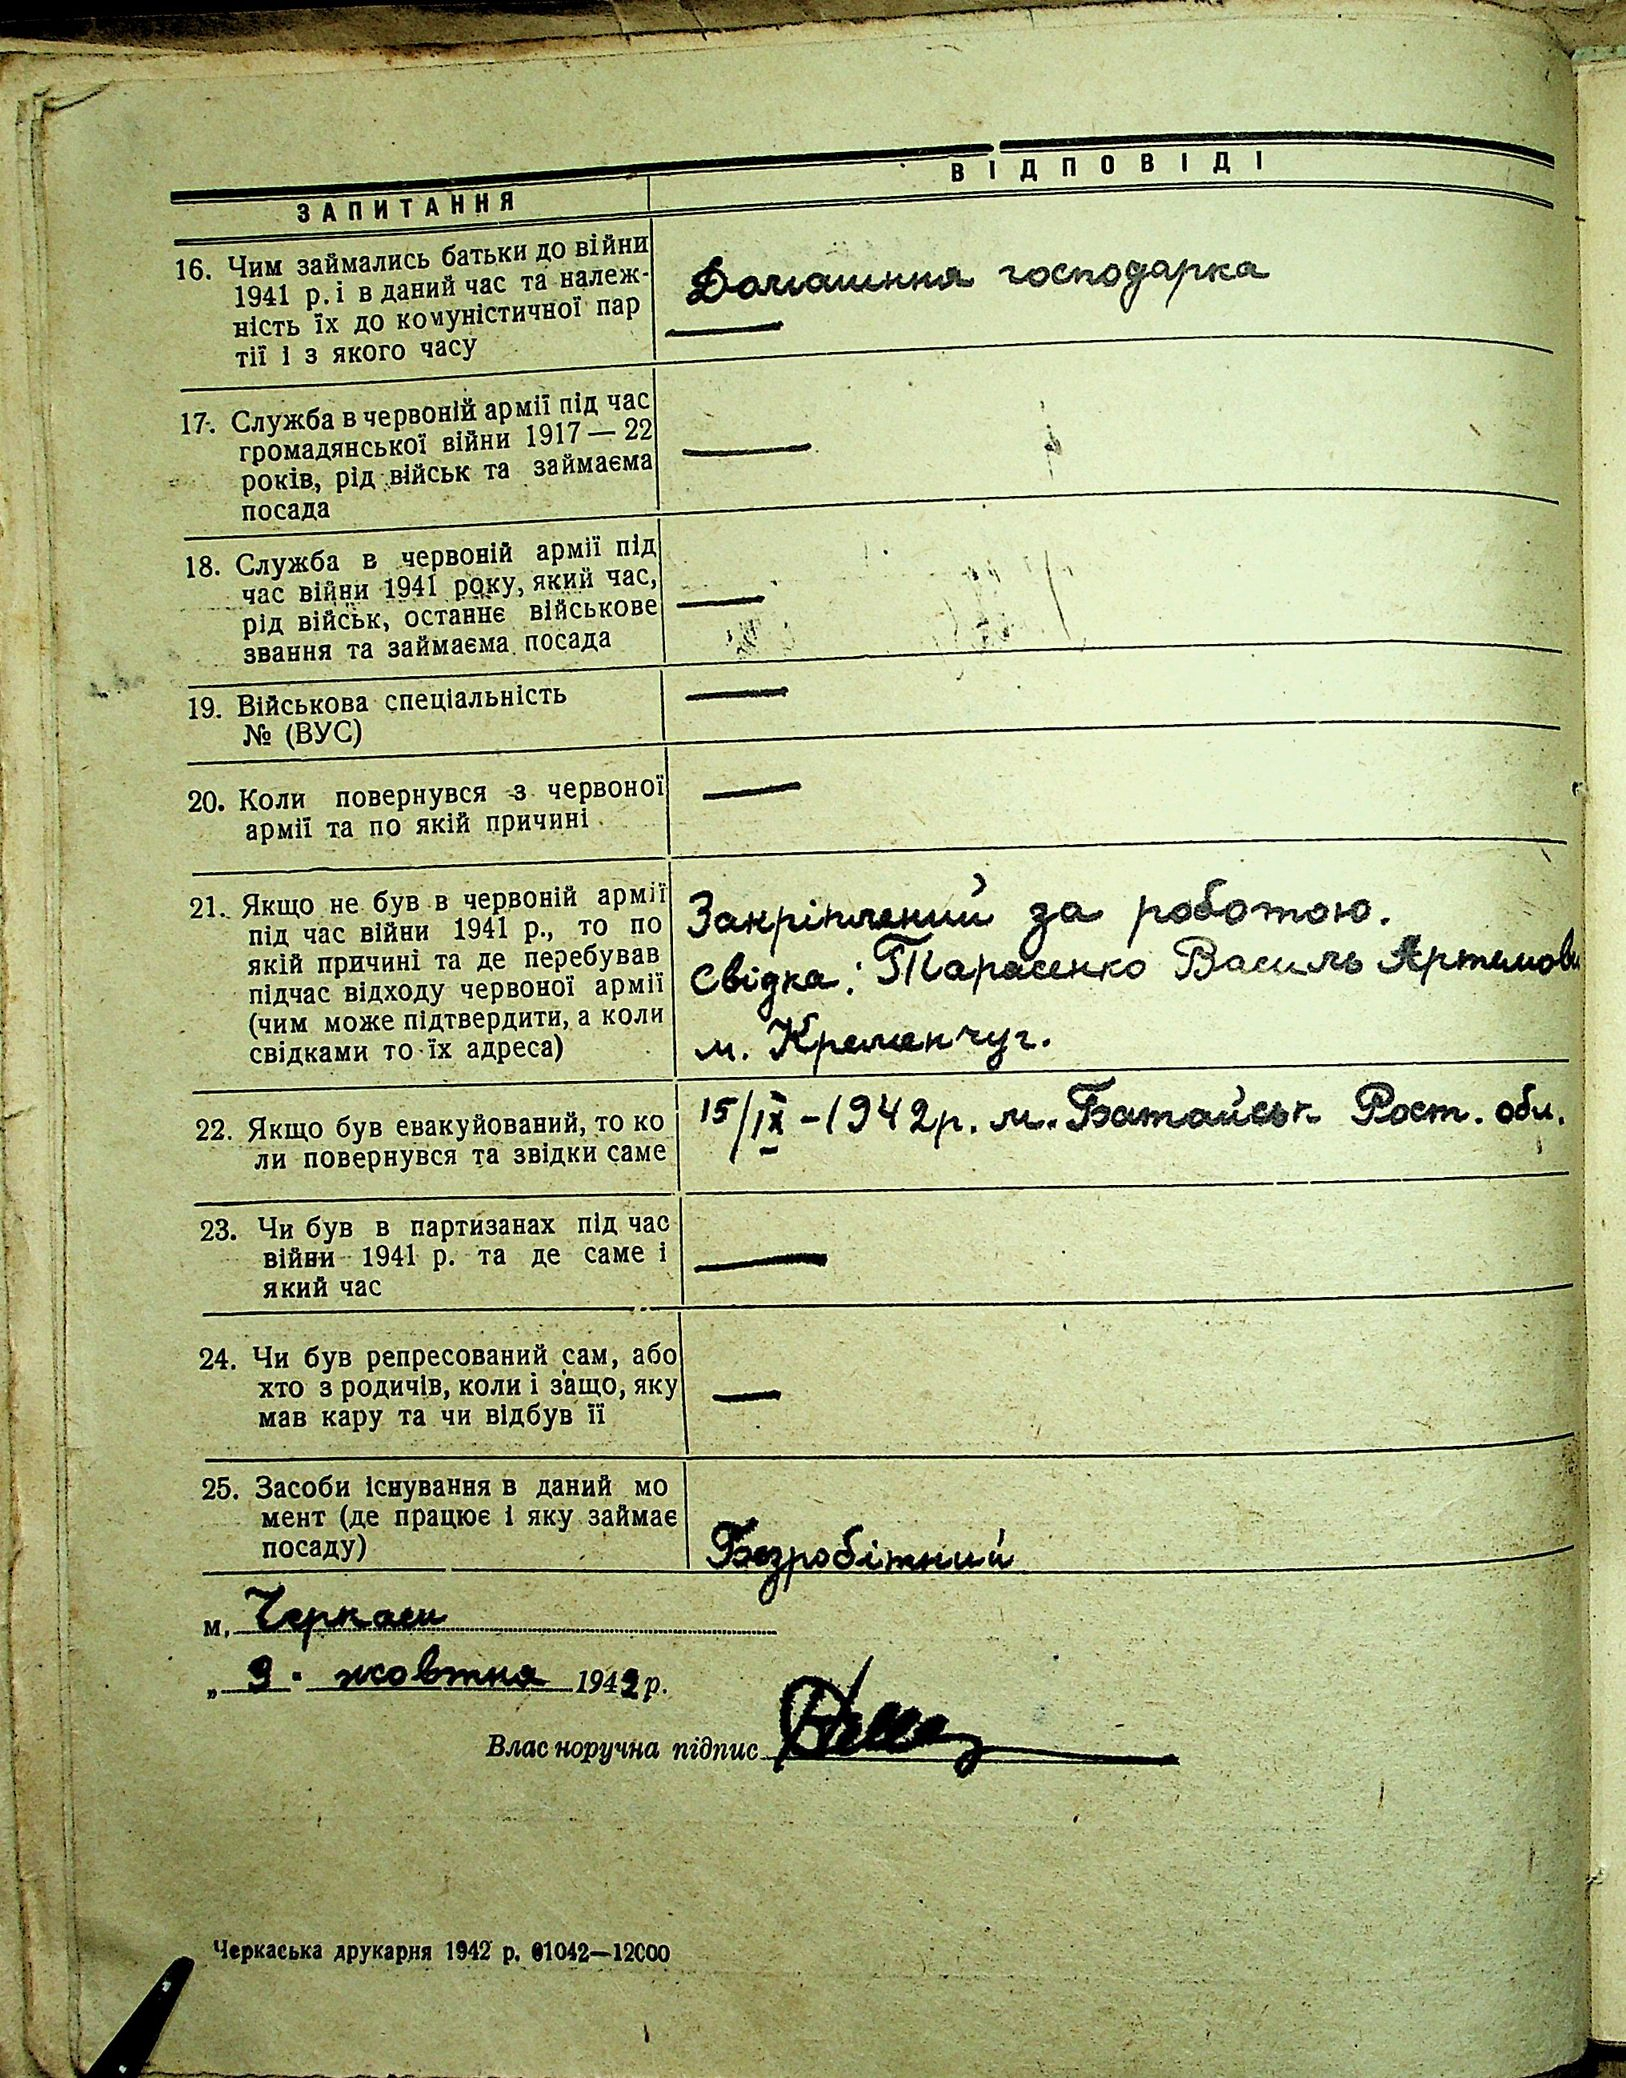 ЗАПИТАННЯ
ВІДПОВІДІ
16. Чим займались батьки до війни
1941 р. і в даний час та належ-
ність їх до комуністичної пар
тії і з якого часу
Домашння господарка
17. Служба в червоній армії під час
громадянської війни 1917 — 22
років, рід військ та займаєма
посада
18. Служба в червоній армії під
час війни 1941 року, який час,
рід військ, останнє військове
звання та займаєма посада
19. Військова спеціальність
№ (ВУС)
20. Коли повернувся з червоної
армії та по якій причині
21. Якщо не був в червоній армії
під час війни 1941 р., то по
якій причині та де перебував
підчас відходу червоної армії
(чим може підтвердити, а коли
свідками то їх адреса)
Закріплений за роботою.
Свідка: Тарасенко Василь Артемов
м. Кременчуг.
22. Якщо був евакуйований, то ко
ли повернувся та звідки саме
15/IX - 1942 р. м. Батайськ Рост. обл.
23. Чи був в партизанах під час
війни 1941 р. та де саме і
який час
24. Чи був репресований сам, або
хто з родичів, коли і защо, яку
мав кару та чи відбув її
25. Засоби існування в даний мо
мент (де працює і яку займає
посаду)
Безробітний
м. Черкаси
„ 9 " жовтня 1942 р.
Власноручна підпис
Черкаська друкарня 1942 р. 01042—12000